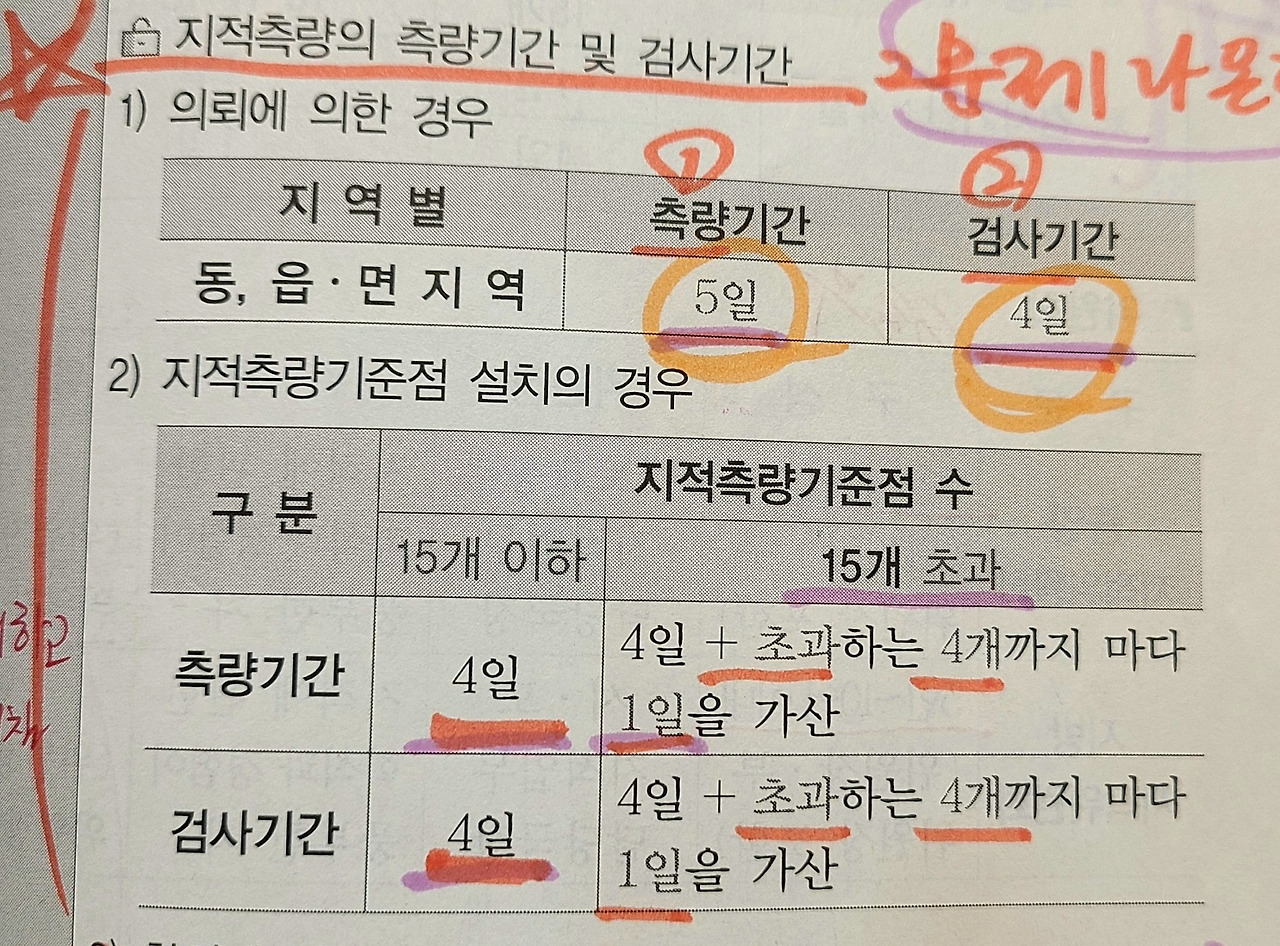 지적측량의 측량기간 및 검사기간
문제 나온
1) 의뢰에 의한 경우
① ②
지 역 별 측량기간 검사기간
동, 읍·면 지 역 5일 4일
2) 지적측량기준점 설치의 경우
구 분 지적측량기준점 수
15개 이하 15개 초과
측량기간 4일 4일 + 초과하는 4개까지 마다
1일을 가산
검사기간 4일 4일 + 초과하는 4개까지 마다
1일을 가산